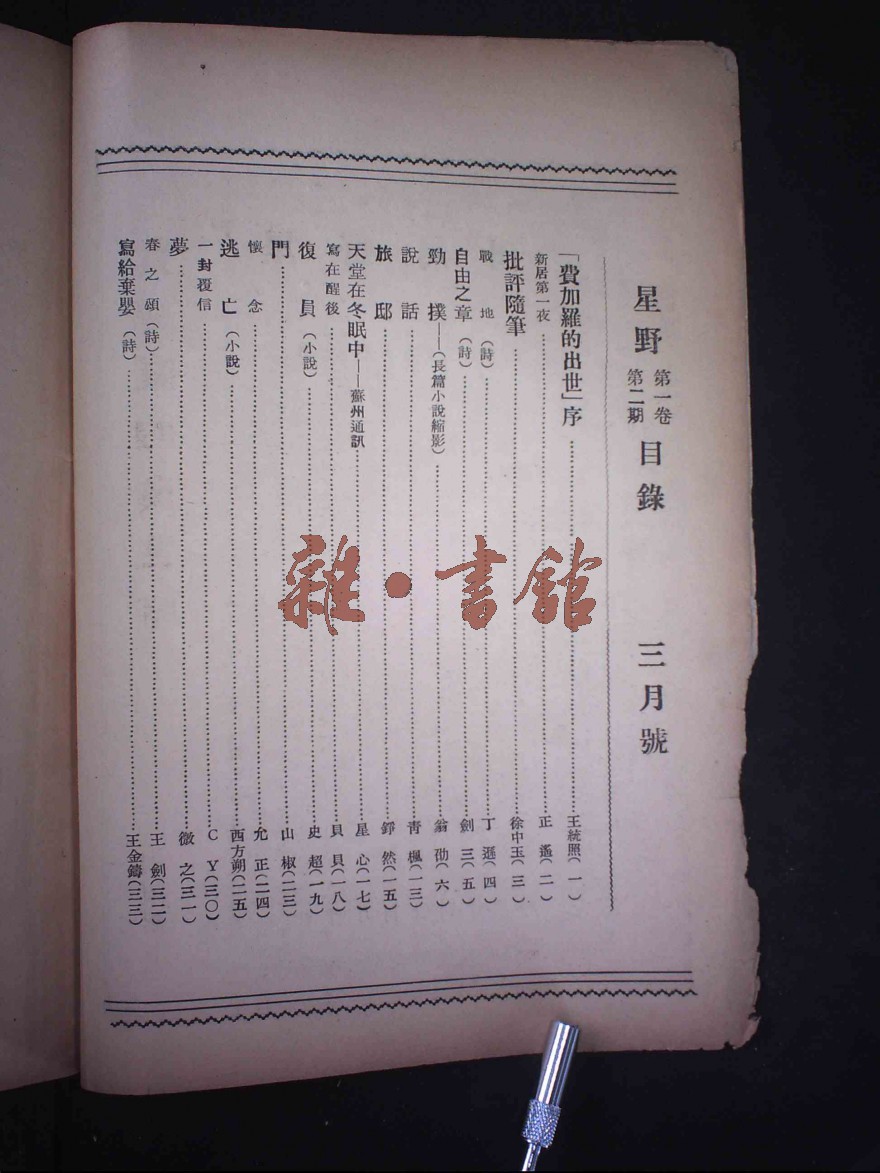 星野 第一卷 第二期 目錄 三月號
「費加羅的出世」序 王統照(一)
新居第一夜 正遙(二)
批評隨筆 徐中玉(三)
戰地(詩) 丁遜(四)
自由之章(詩) 劍三(五)
勁撲——(長篇小說縮影) 翁劭(六)
說話 青楓(一三)
旅邸 錚然(一五)
天堂在冬眠中——蘇州通訊 星心(一七)
寫在醒後 貝貝(一八)
復員(小說) 史超(一九)
門 山椒(二三)
懷念 允正(二四)
逃亡(小說) 西方朔(二五)
一封覆信 CY(三〇)
夢 微之(三一)
春之頌(詩) 王劍(三二)
寫給棄嬰(詩) 王金鑄(三三)
雜·書館